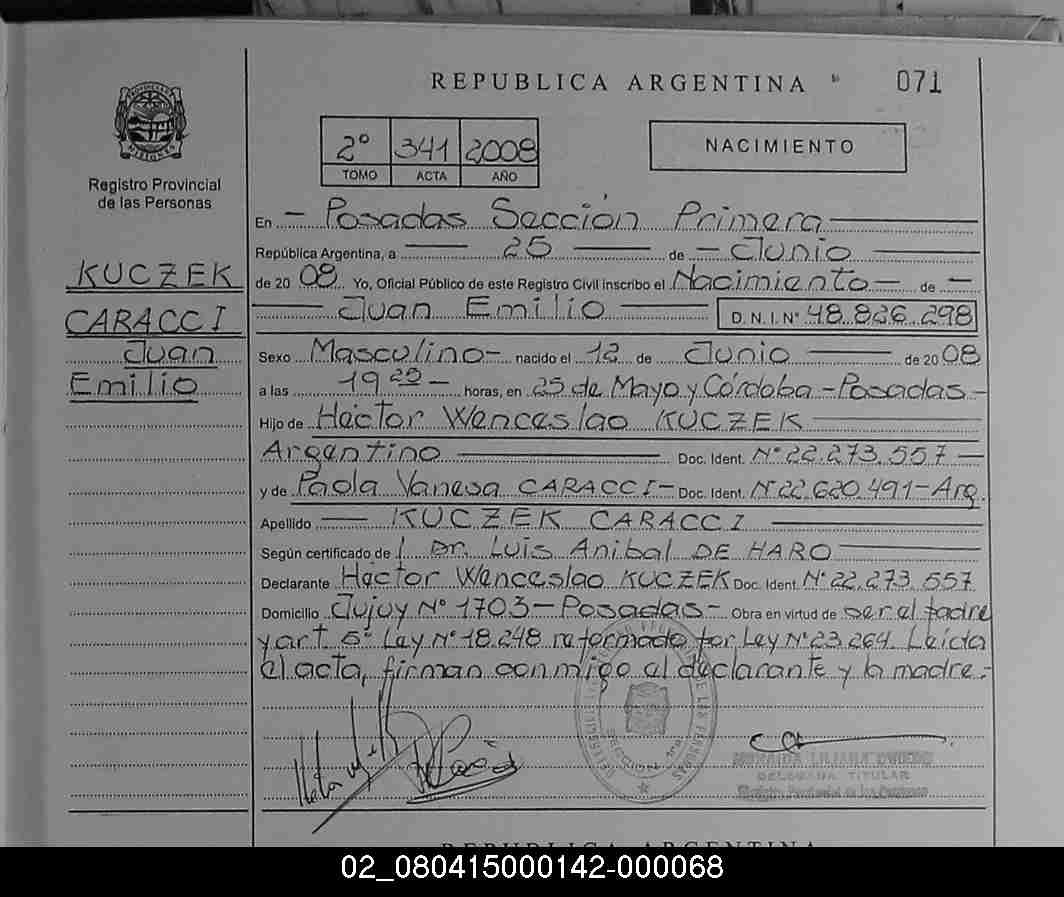 REPUBLICA ARGENTINA
071
PROVINCIA DE
MISIONES
Registro Provincial
de las Personas
2° 341 2008
TOMO ACTA AÑO
NACIMIENTO
KUCZEK
CARACCI
Juan
Emilio
En - Posadas Sección Primera
República Argentina, a 25 de - Junio
de 2008. Yo, Oficial Público de este Registro Civil inscribo el Nacimiento - de -
Juan Emilio D.N.I. N° 48.826.298
Sexo Masculino - nacido el 12 de Junio de 2008
a las 19 25 - horas, en 25 de Mayo y Córdoba - Posadas -
Hijo de Héctor Wenceslao KUCZEK
Argentino Doc. Ident. N° 22.273.557 -
y de Paola Vanesa CARACCI - Doc. Ident. N° 22.620.491 - Arg.
Apellido KUCZEK CARACCI
Según certificado de Dr. Luis Anibal DE HARO
Declarante Héctor Wenceslao KUCZEK Doc. Ident. N° 22.273.557
Domicilio Jujuy N° 1703 - Posadas - Obra en virtud de ser el padre
y art. 5° Ley N° 18.248 reformado por Ley N° 23.264. Leída
el acta, firman conmigo el declarante y la madre.-
LILIANA OVIEDO
DELEGADA TITULAR
Registro Provincial de las Personas
REPUBLICA ARGENTINA
02_080415000142-000068